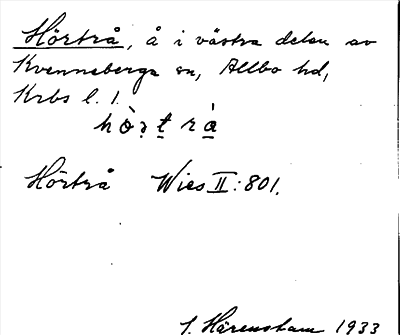 Hörtrå, å i västra delen av
Kvenneberga sn, Allbo hd,
Krbs l. 1.
Hörtrå Wies II:801.
Härenstam 1933